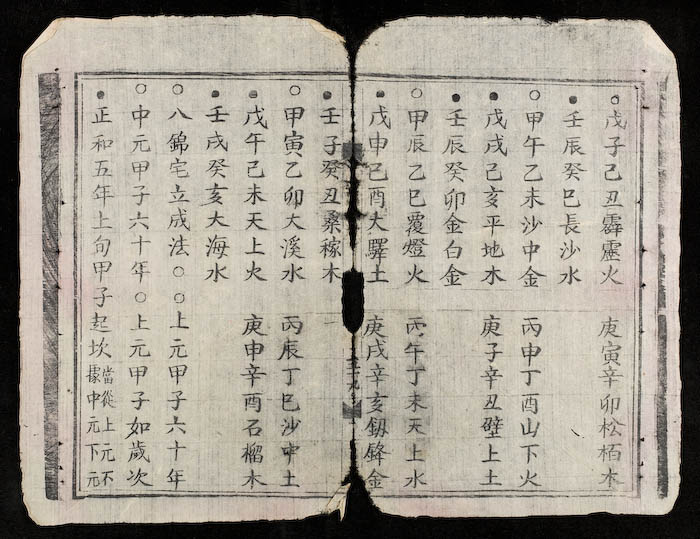 戊子己丑霹靂火　庚寅辛卯松栢木
壬辰癸巳長沙水
甲午乙未沙中金　丙申丁酉山下火
戊戌己亥平地木　庚子辛丑壁上土
壬辰癸卯金白金
甲辰乙巳覆燈火　丙午丁未天上水
戊申己酉大驛土　庚戌辛亥釼鋒金
壬子癸丑桑稼木
甲寅乙卯大溪水　丙辰丁巳沙中土
戊午己未天上火　庚申辛酉石榴木
壬戌癸亥大海水
八錦宅立成法○○上元甲子六十年
中元甲子六十年○上元甲子如歲次
正和五年上旬甲子起坎當從上元不據中元下元